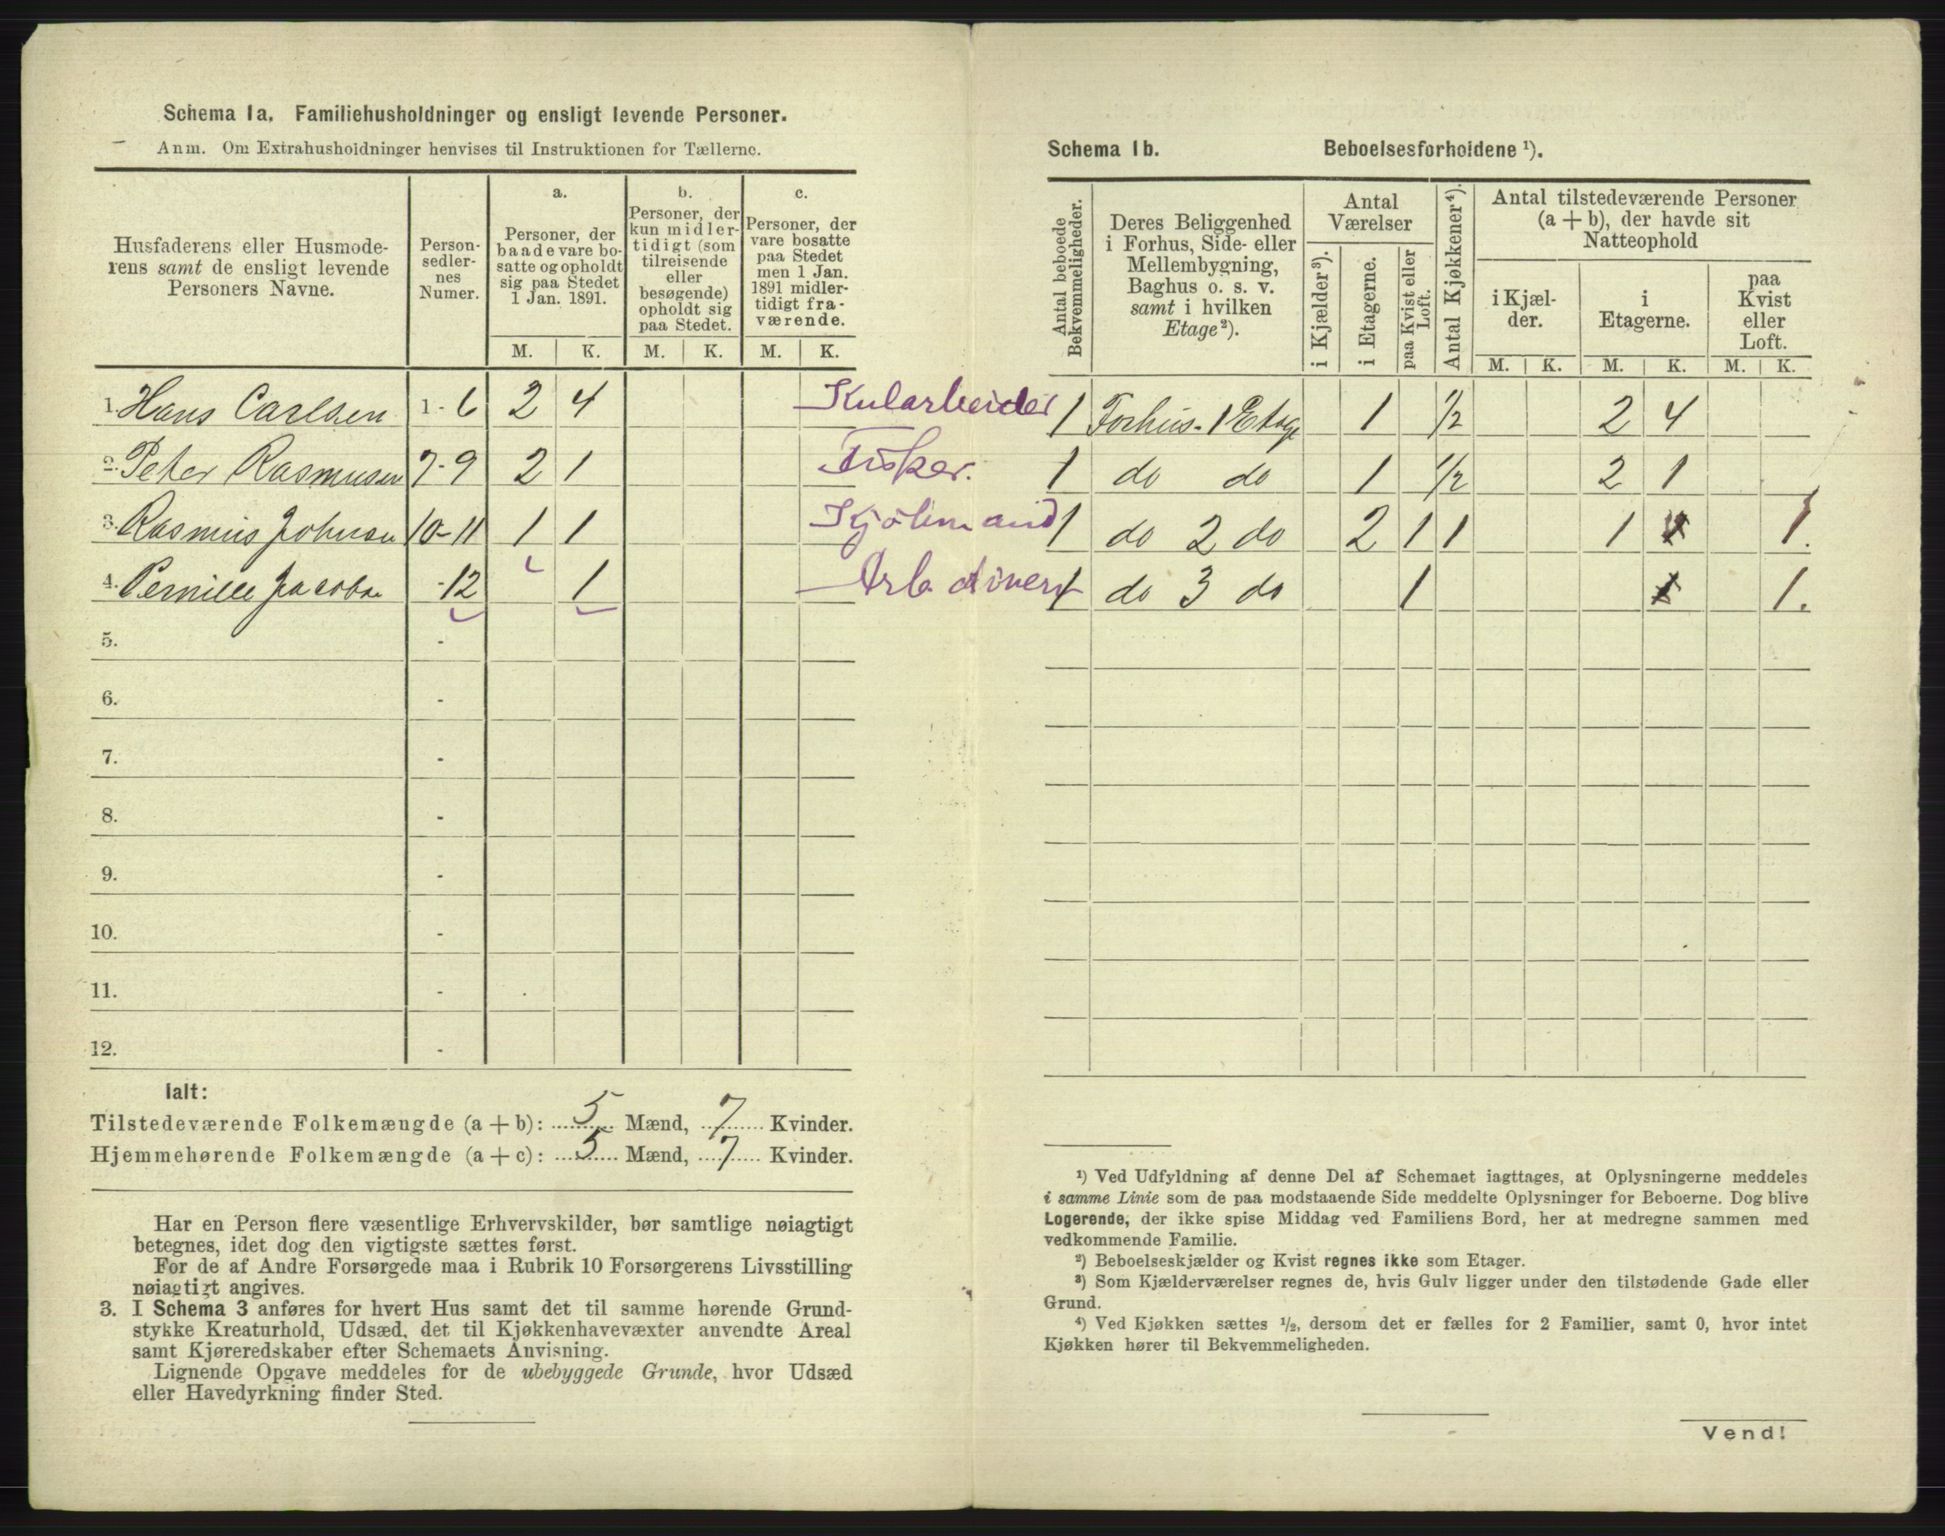 Schema 1a. Familiehusholdninger og ensligt levende Personer.
Anm. Om Extrahusholdninger henvises til Instruktionen for Tællerne.
Husfaderens eller Husmode-
rens samt de ensligt levende
Personers Navne.
Person-
sedler-
nes
Numer.
a.
Personer, der
baade vare bo-
satte og opholdt
sig paa Stedet
1 Jan. 1891.
b.
Personer, der
kun midler-
tidigt (som
tilreisende
eller
besøgende)
opholdt sig
paa Stedet.
c.
Personer, der
vare bosatte
paa Stedet
men 1 Jan.
1891 midler-
tidigt fra-
værende.
M. K. M. K. M. K.
1. Hans Carlsen 1-6 2 4 Kularbeider
2. Peter Rasmusen 7-9 2 1 Fisker.
3. Rasmus Johnsen 10-11 1 1
4. Pernille Jacobsen -12 1
5. -
6. -
7. -
8. -
9. -
10. -
11. -
12. -
Ialt:
Tilstedeværende Folkemængde (a + b): 5 Mænd, 7 Kvinder.
Hjemmehørende Folkemængde (a + c): 5 Mænd, 7 Kvinder.
Har en Person flere væsentlige Erhvervskilder, bør samtlige nøiagtigt
betegnes, idet dog den vigtigste sættes først.
For de af Andre Forsørgede maa i Rubrik 10 Forsørgerens Livsstilling
nøiagtigt angives.
3. I Schema 3 anføres for hvert Hus samt det til samme hørende Grund-
stykke Kreaturhold, Udsæd, det til Kjøkkenhavevæxter anvendte Areal
samt Kjøreredskaber efter Schemaets Anvisning.
Lignende Opgave meddeles for de ubebyggede Grunde, hvor Udsæd
eller Havedyrkning finder Sted.
Schema 1b. Beboelsesforholdene ¹).
Antal beboede
Bekvemmeligheder.
Deres Beliggenhed
i Forhus, Side- eller
Mellembygning,
Baghus o. s. v.
samt i hvilken
Etage²).
Antal
Værelser
i Kjælder³).
i Etagerne.
paa Kvist eller
Loft.
Antal Kjøkkener⁴).
Antal tilstedeværende Personer
(a + b), der havde sit
Natteophold
i Kjæl-
der.
i
Etagerne.
paa
Kvist
eller
Loft.
M. K. M. K. M. K.
1 Forhus - 1 Etage 1 1/2 2 4
1 do do 1 1/2 2 1
1 do 2 do 2 1 1 1 1.
1 do 3 do 1 1 1.
¹) Ved Udfyldning af denne Del af Schemaet iagttages, at Oplysningerne meddeles
i samme Linie som de paa modstaaende Side meddelte Oplysninger for Beboerne. Dog blive
Logerende, der ikke spise Middag ved Familiens Bord, her at medregne sammen med
vedkommende Familie.
²) Beboelseskjælder og Kvist regnes ikke som Etager.
³) Som Kjælderværelser regnes de, hvis Gulv ligger under den tilstødende Gade eller
Grund.
⁴) Ved Kjøkken sættes ½, dersom det er fælles for 2 Familier, samt 0, hvor intet
Kjøkken hører til Bekvemmeligheden.
Vend!